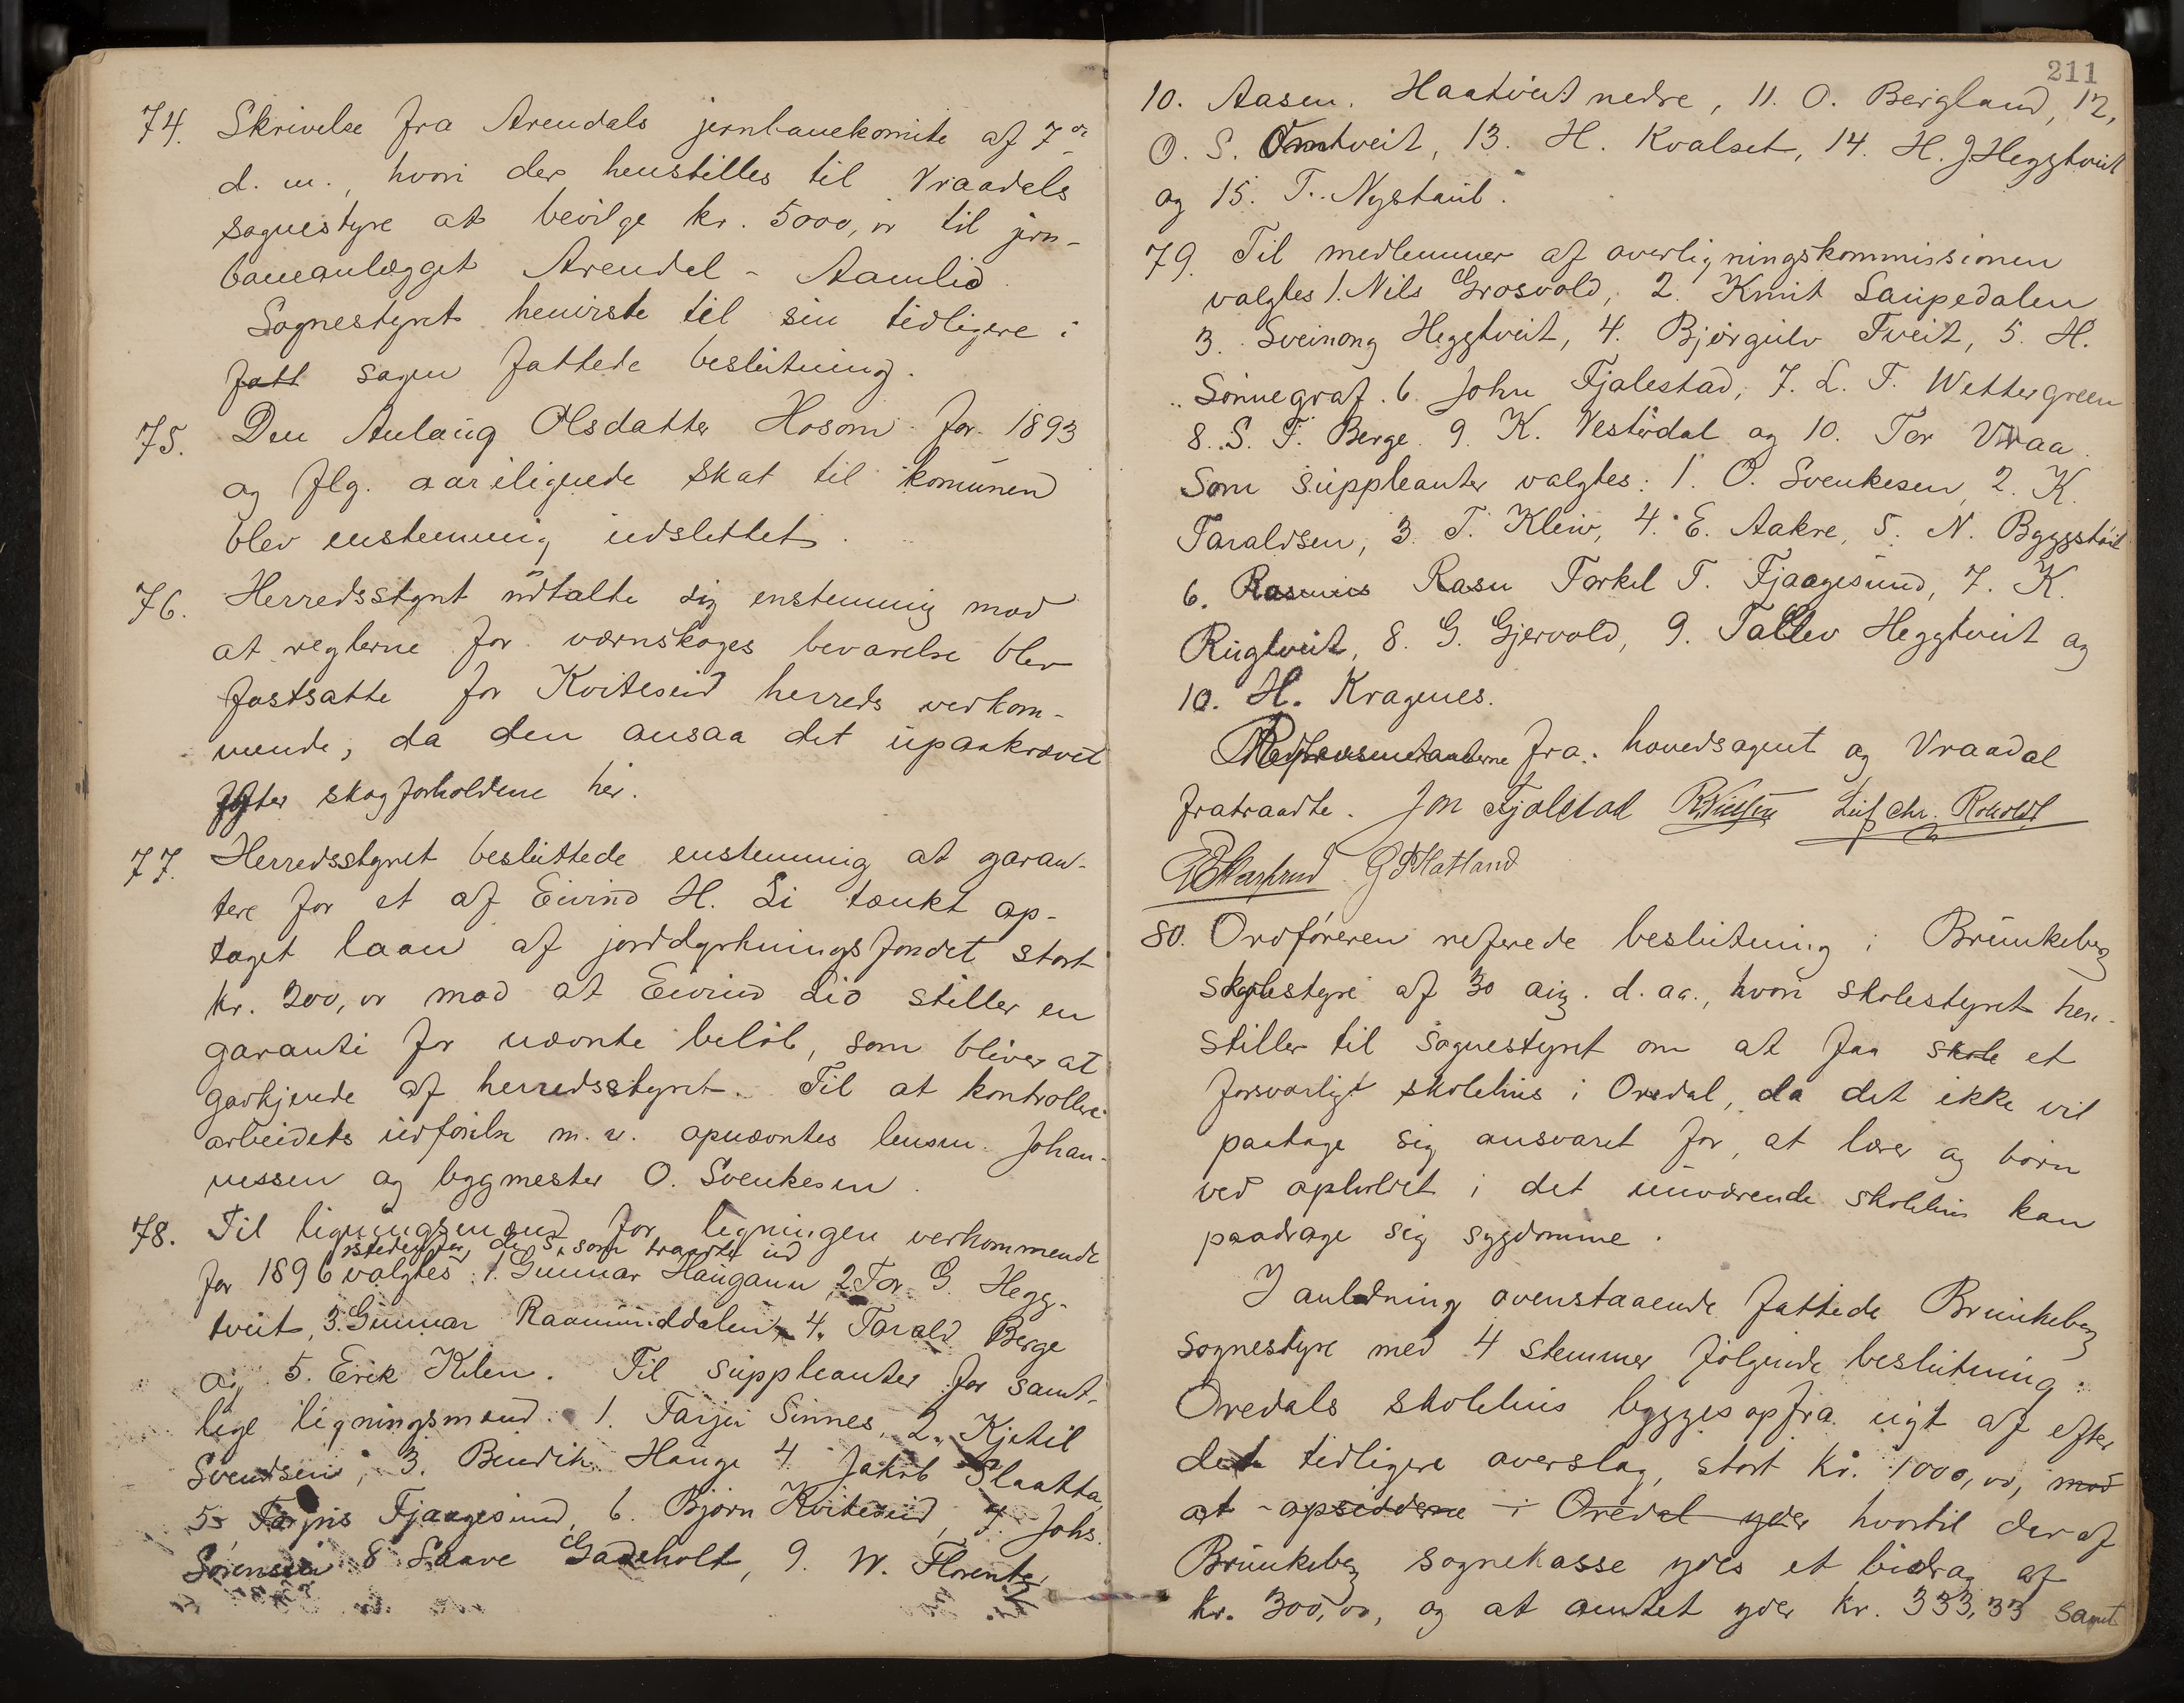 74. Skrivelse fra Arendals jernbanekomite af 7de
d. m., hvori der henstilles til Vraadals
sognestyre at bevilge kr. 5000,00 til jern-
baneanlægget Arendal - Aamlid.
Sognestyret henviste til sin tidligere i
fatt sagen fattede beslutning.
75. Den Aulaug Olsdatter Hosom for 1893
og flg. aar ilignede skat til komunen
blev enstemmig udslettet.
76. Herredsstyrt udtalte sig enstemmig mod
at reglerne for værnskoges bevarelse blev
fastsatte for Kviteseid herreds vedkom-
mende, da den ansaa det upaakrævet
efter skogforholdene her.
77. Herredsstyret besluttede enstemmig at garan-
tere for et af Eivind H. Li tænkt op-
taget laan af jorddyrkningsfondet stort
kr. 200,00 mod at Eivind Lid stiller en
garanti for nævnte beløb, som bliver at
godkjende af herredsstyret. Til at kontrollere
arbeidets udførelse m. v. opnævntes lensm. Johan-
nessen og bygmester O. Svenkesen.
78. Til ligningsmænd for ligningen vedkommende
istedenfor de 5, som traadte ud
for 1896 valgtes: 1. Gunnar Haugann, 2 Tor G. Hegg-
tveit, 3. Gunnar Raamunddalen 4. Tarald Berge
og 5. Erik Kilen. Til suppleanter for samt-
lige ligningsmænd: 1. Tarjei Sinnes, 2. Kjetil
Svendsen, 3. Bendik Hauge 4 Jakob Slaatta,
5 Tarjus Fjaagesund, 6. Bjørn Kviteseid, 7. Johs.
Sørensen 8 Saave Gaaseholt, 9. W. Florentz,
211
10. Aasen. Haatveit nedre, 11. O. Bergland, 12,
O. S. Omtveit, 13. H. Kvalset, 14. H. J Heggtveit
og 15. T. Nystaul.
79. Til medlemmer af overligningskommissionen
valgtes 1. Nils Grosvold, 2. Knut Laupedalen
3. Sveinong Heggtveit, 4. Bjørgulv Tveit, 5. H.
Sønnegraf. 6. John Fjalestad, 7. L. T. Wettergreen
8. S. T. Berge. 9. K. Vesterdal og 10. Tor Vraa.
Som suppleanter valgtes: 1. O. Svenkesen, 2. K.
Taraldsen, 3. T. Kleiv, 4. E. Aakre, 5. N. Byggstøil
6. Rasmus Rasm Torkel T. Fjaagesund, 7. K.
Rugtveit, 8. G. Gjervold, 9. Tallev Heggtveit og
10. H. Kragenes.
Repræsentanterne fra hovedsognet og Vraadal
fratraadte. Jon Fjalestad R Nielsen Leif Chr. Roholdt
G Hatland
80. Ordføreren refererede beslutning i Brunkeberg
skolestyre af 30 aug. d. aa., hvori skolestyret hen-
stiller til sognestyret om at faa skole et
forsvarligt skolehus i Ordal, da det ikke vil
paatage sig ansvaret for, at lærer og børn
ved opholdet i det nuværende skolehus kan
paadrage sig sygdomme.
I anledning ovenstaaende fattede Brunkeberg
sognestyre med 4 stemmer følgende beslutning:
Ovedals skolehus bygges op fra nyt af efter
det tidligere overslag, stort kr. 1000,00, mod
at opsidderne i Ovedal yder hvortil der af
Brunkeberg sognekasse ydes et bidrag af
kr. 300,00, og at amtet yder kr. 333,33 samt